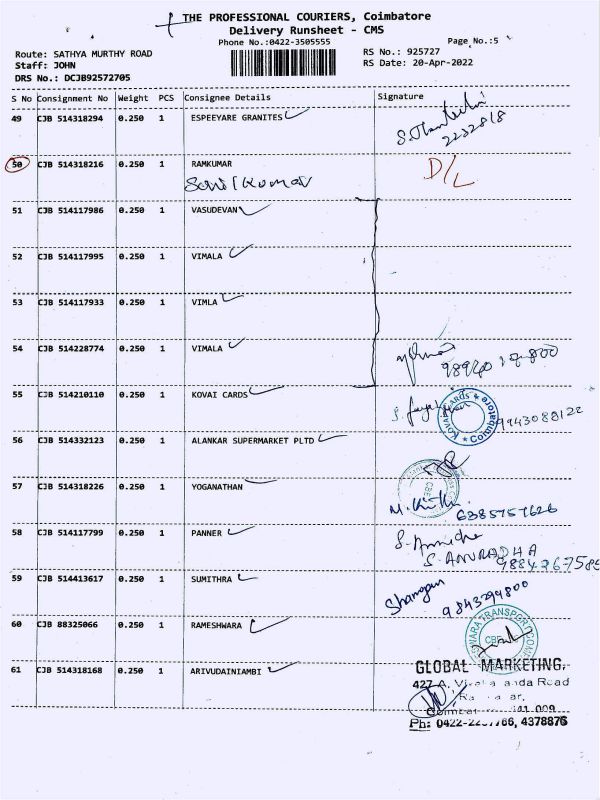 THE PROFESSIONAL COURIERS, Coimbatore
Delivery Runsheet - CMS
Phone No.:0422-3505555
Page No.:5
Route: SATHYA MURTHY ROAD
Staff: JOHN
DRS No.: DCJB92572705
RS No.: 925727
RS Date: 20-Apr-2022
S No Consignment No Weight PCS Consignee Details Signature
49 CJB 514318294 0.250 1 ESPEEYARE GRANITES
2232818
50 CJB 514318216 0.250 1 RAMKUMAR D/L
51 CJB 514117986 0.250 1 VASUDEVAN
52 CJB 514117995 0.250 1 VIMALA
53 CJB 514117933 0.250 1 VIMLA
54 CJB 514228774 0.250 1 VIMALA
55 CJB 514210110 0.250 1 KOVAI CARDS
KOVAI CARDS Coimbatore
9943088122
56 CJB 514332123 0.250 1 ALANKAR SUPERMARKET PLTD
57 CJB 514318226 0.250 1 YOGANATHAN
6385757626
58 CJB 514117799 0.250 1 PANNER
S. ANURADHA
59 CJB 514413617 0.250 1 SUMITHRA
9843294800
60 CJB 88325066 0.250 1 RAMESHWARA
61 CJB 514318168 0.250 1 ARIVUDAINIAMBI
GLOBAL MARKETING,
427-A, Road
Ph: 0422- 4378876